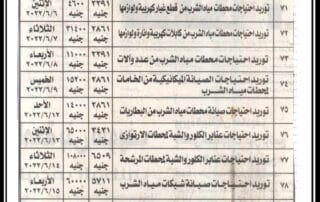 ٧١ توريد احتياجات محطات مياه الشرب من قطع غيار كهربية ولوازمها ٢٢٩١ جنيه ٤٦٠٠ جنيه الإثنين ٢٠٢٢/٦/٦
٧٢ توريد احتياجات محطات مياه الشرب من كابلات كهربية وإنارة ولوازمها ٢٨٦١ جنيه ٣١٠٠٠ جنيه الثلاثاء ٢٠٢٢/٦/٧
٧٣ توريد احتياجات محطات مياه الشرب من عدد وآلات ٢٢٩١ جنيه ١١٠٠٠ جنيه الأربعاء ٢٠٢٢/٦/٨
٧٤ توريد احتياجات الصيانة الميكانيكية من الخامات لمحطات مياه الشرب ٢٨٦١ جنيه ٣٤٠٠٠ جنيه الخميس ٢٠٢٢/٦/٩
٧٥ توريد احتياجات صيانة محطات مياه الشرب من البطاريات ٢٨٦١ جنيه ١٤٠٠٠ جنيه الأحد ٢٠٢٢/٦/١٢
٧٦ توريد احتياجات عنابر الكلور والشبة لمحطات الارتوازى ٣٤٣١ جنيه ٦٥٠٠٠ جنيه الإثنين ٢٠٢٢/٦/١٣
٧٧ توريد احتياجات عنابر الكلور والشبة للمحطات المرشحة ٦٥٠٩ جنيه ١٠٨٠٠٠ جنيه الثلاثاء ٢٠٢٢/٦/١٤
٧٨ توريد احتياجات صيانة شبكات مياه الشرب ٥٧١١ جنيه ٦٠٠٠٠ جنيه الأربعاء ٢٠٢٢/٦/١٥